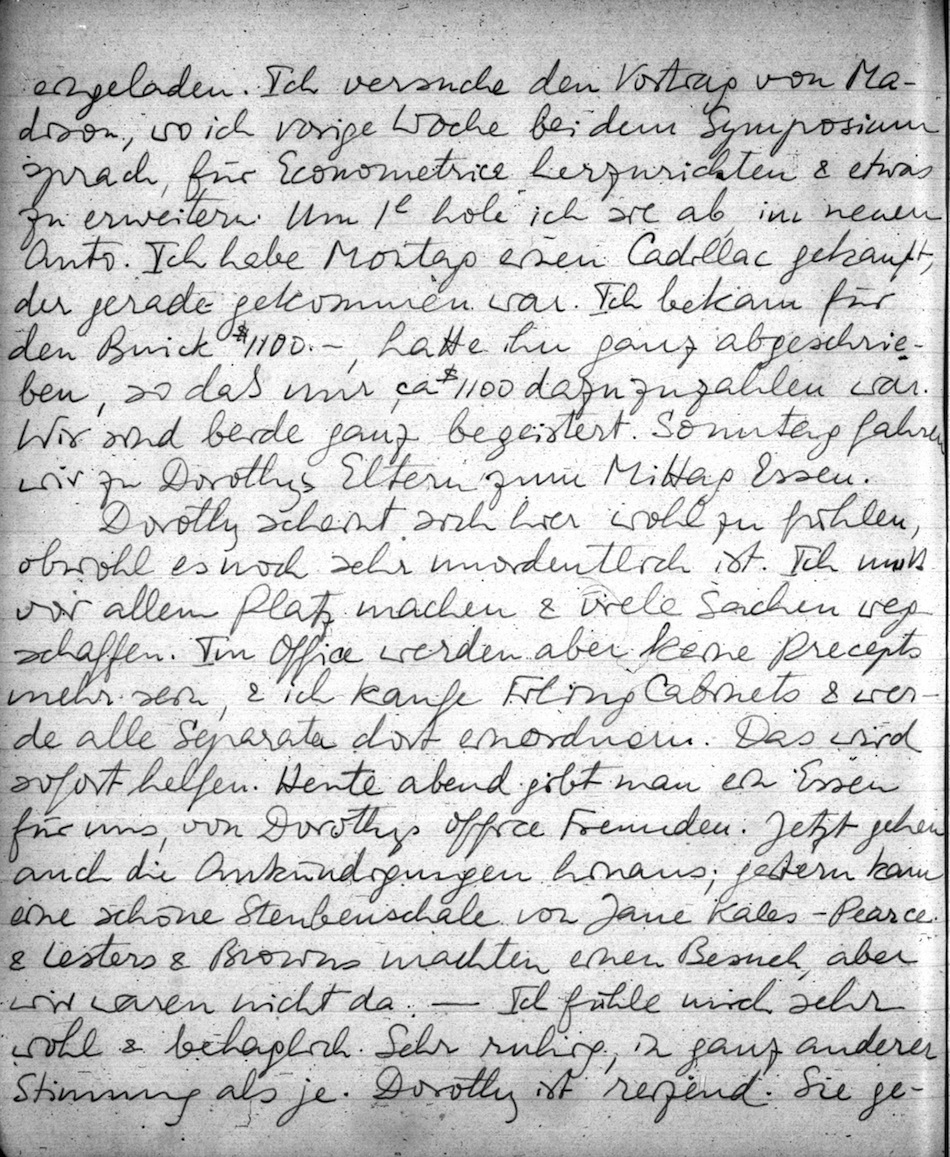 eingeladen. Ich versuche den Vortrag von Ma-
dison, wo ich vorige Woche bei dem Symposium
sprach, für Econometrica herzurichten & etwas
zu erweitern. Um 1h hole ich sie ab, im neuen
Auto. Ich habe Montag einen Cadillac gekauft,
der gerade gekommen war. Ich bekam für
den Buick $1100.–, hatte ihn ganz abgeschrie-
ben, so daß nur ca $1100 dazuzuzahlen war.
Wir sind beide ganz begeistert. Sonntag fahren
wir zu Dorothys Eltern zum Mittag Essen.
Dorothy scheint sich hier wohl zu fühlen,
obwohl es noch sehr unordentlich ist. Ich muß
vor allem Platz machen & viele Sachen weg
schaffen. Im Office werden aber keine Precepts
mehr sein, & ich kaufe Filing Cabinets & wer-
de alle Separata dort einordnen. Das wird
sofort helfen. Heute abend gibt man ein Essen
für uns, von Dorothys Office Freunden. Jetzt gehen
auch die Ankündigungen hinaus; gestern kam
eine schöne Steubenschale von Jane Kales-Pearce.
& Lesters & Browns machten einen Besuch, aber
wir waren nicht da. — Ich fühle mich sehr
wohl & behaglich. Sehr ruhig, in ganz anderer
Stimmung als je. Dorothy ist reizend. Sie ge-